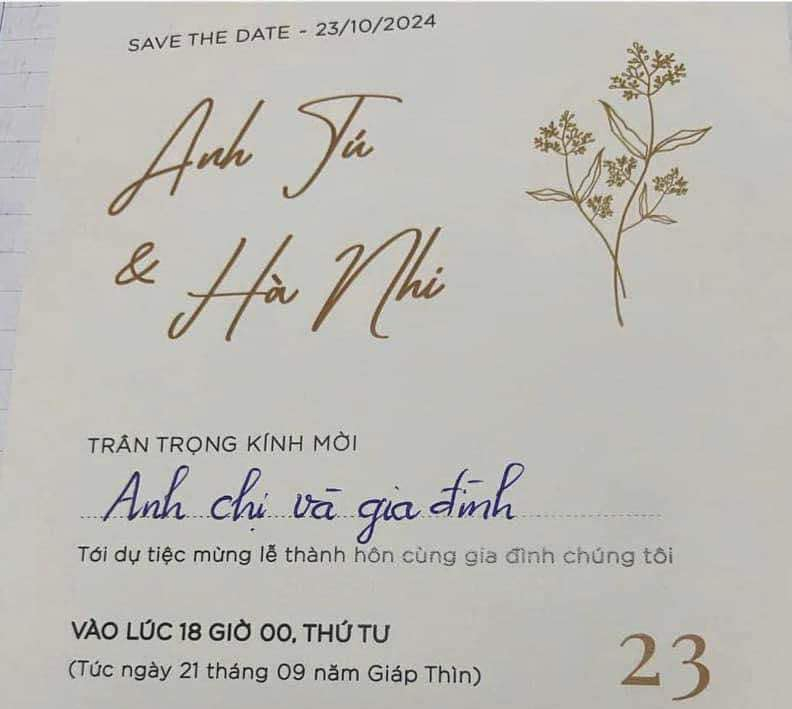 SAVE THE DATE - 23/10/2024
Anh Tú
& Hà Nhi
TRÂN TRỌNG KÍNH MỜI
Anh chị và gia đình
Tới dự tiệc mừng lễ thành hôn cùng gia đình chúng tôi
VÀO LÚC 18 GIỜ 00, THỨ TƯ
(Tức ngày 21 tháng 09 năm Giáp Thìn)
23